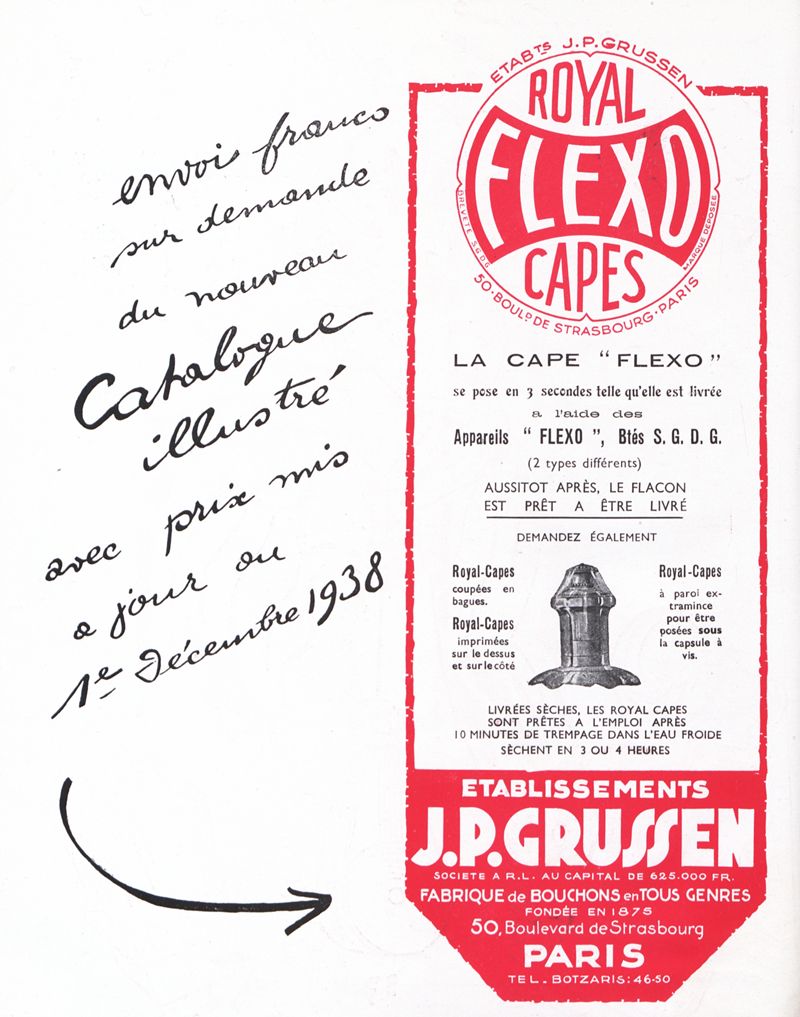 envoi franco
sur demande
du nouveau
Catalogue
illustré
avec prix mis
a jour au
1er Décembre 1938
ETABTS J.P.GRUSSEN
ROYAL
FLEXO
CAPES
BREVETÉ S.G.D.G.
MARQUE DÉPOSÉE
50·BOULD DE STRASBOURG·PARIS
LA CAPE “FLEXO”
se pose en 3 secondes telle qu'elle est livrée
a l'aide des
Appareils “FLEXO”, Btés S. G. D. G.
(2 types différents)
AUSSITOT APRÈS, LE FLACON
EST PRÊT A ÊTRE LIVRÉ
DEMANDEZ ÉGALEMENT
Royal-Capes
coupées en
bagues.
Royal-Capes
imprimées
sur le dessus
et sur le côté
Royal-Capes
à paroi ex-
tramince
pour être
posées sous
la capsule à
vis.
LIVRÉES SÈCHES, LES ROYAL CAPES
SONT PRÊTES A L'EMPLOI APRÈS
10 MINUTES DE TREMPAGE DANS L'EAU FROIDE
SÈCHENT EN 3 OU 4 HEURES
ETABLISSEMENTS
J.P.GRUSSEN
SOCIETE A R.L. AU CAPITAL DE 625.000 FR.
FABRIQUE de BOUCHONS en TOUS GENRES
FONDÉE EN 1875
50, Boulevard de Strasbourg
PARIS
TEL. BOTZARIS: 46-50